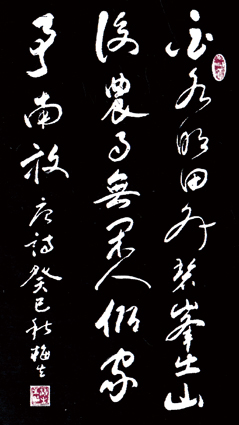 白水明田外碧峯出山
後農月無閑人傾家
事南畝 唐詩癸巳秋梅生